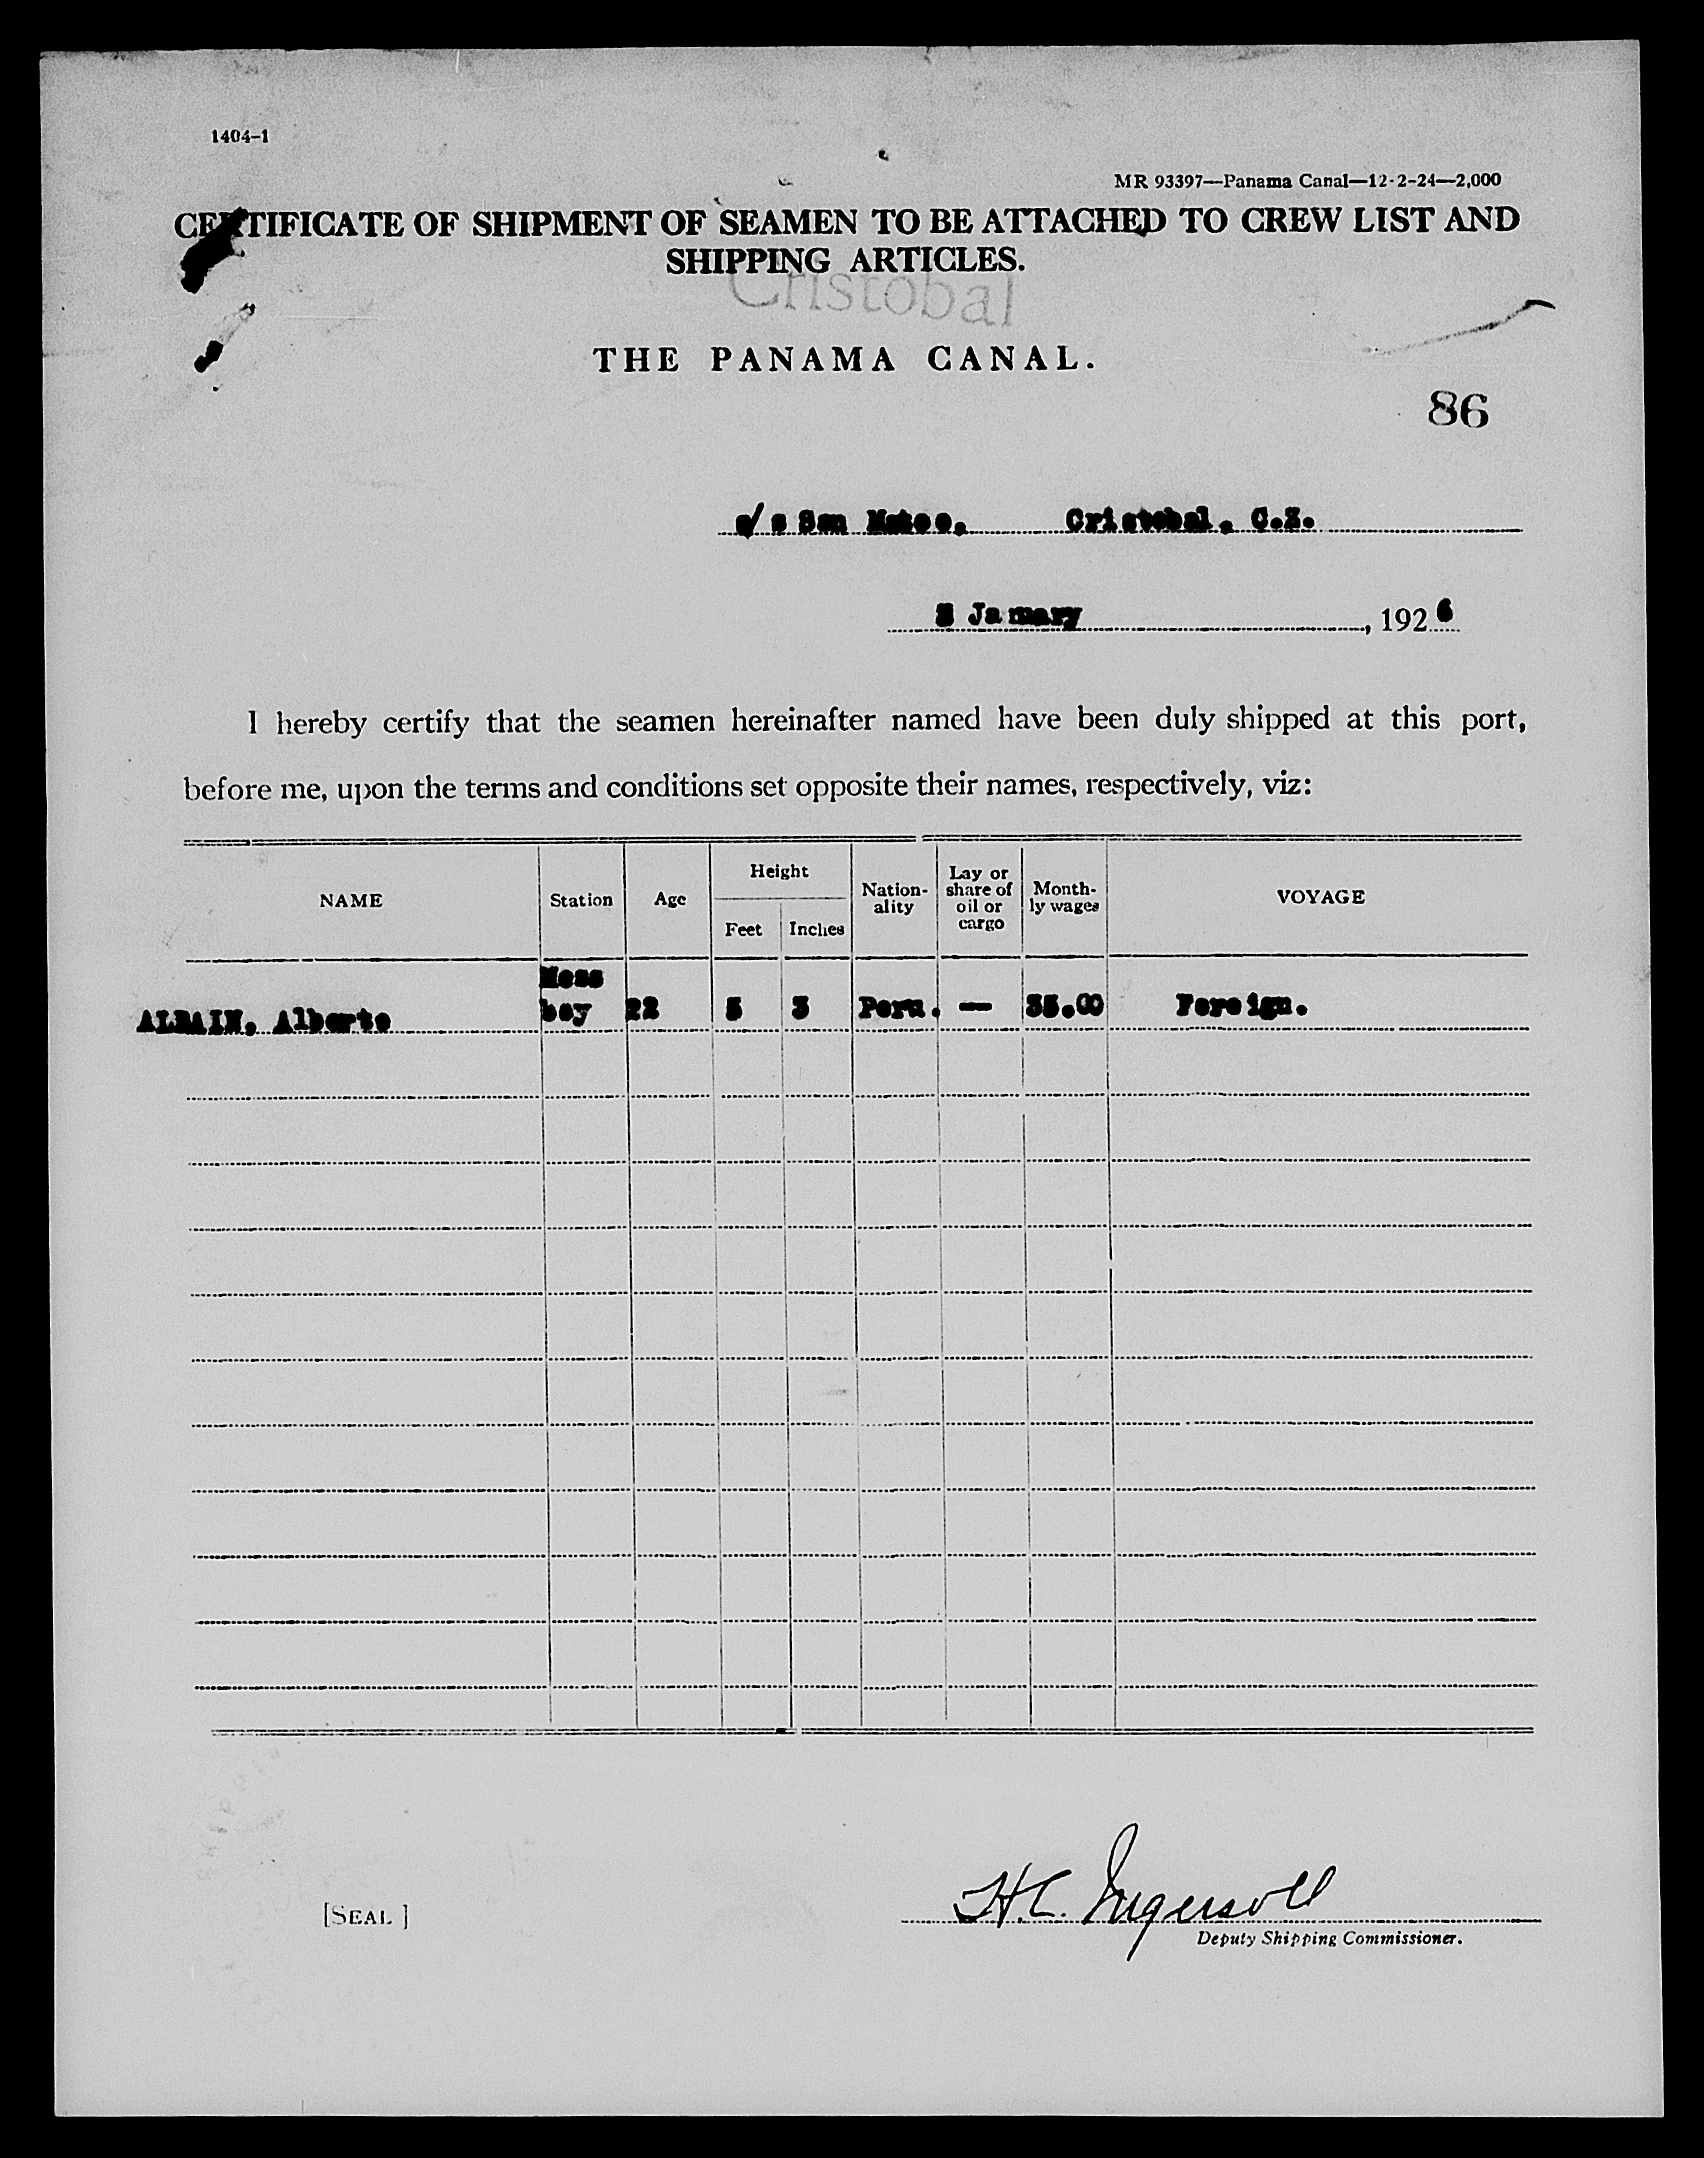 1404-1
MR 93397—Panama Canal—12-2-24—2,000
CERTIFICATE OF SHIPMENT OF SEAMEN TO BE ATTACHED TO CREW LIST AND
SHIPPING ARTICLES.
Cristobal
THE PANAMA CANAL.
86
s/s San Mateo. Cristobal, C.Z.
January, 1926
I hereby certify that the seamen hereinafter named have been duly shipped at this port,
before me, upon the terms and conditions set opposite their names, respectively, viz:
NAME Station Age Height Feet Inches Nation-ality Lay or share of oil or cargo Month-ly wages VOYAGE
ALBAIN, Alberto Mess boy 22 5 3 Peru. — 35.00 Foreign.
[SEAL]
H.C. Ingersoll
Deputy Shipping Commissioner.